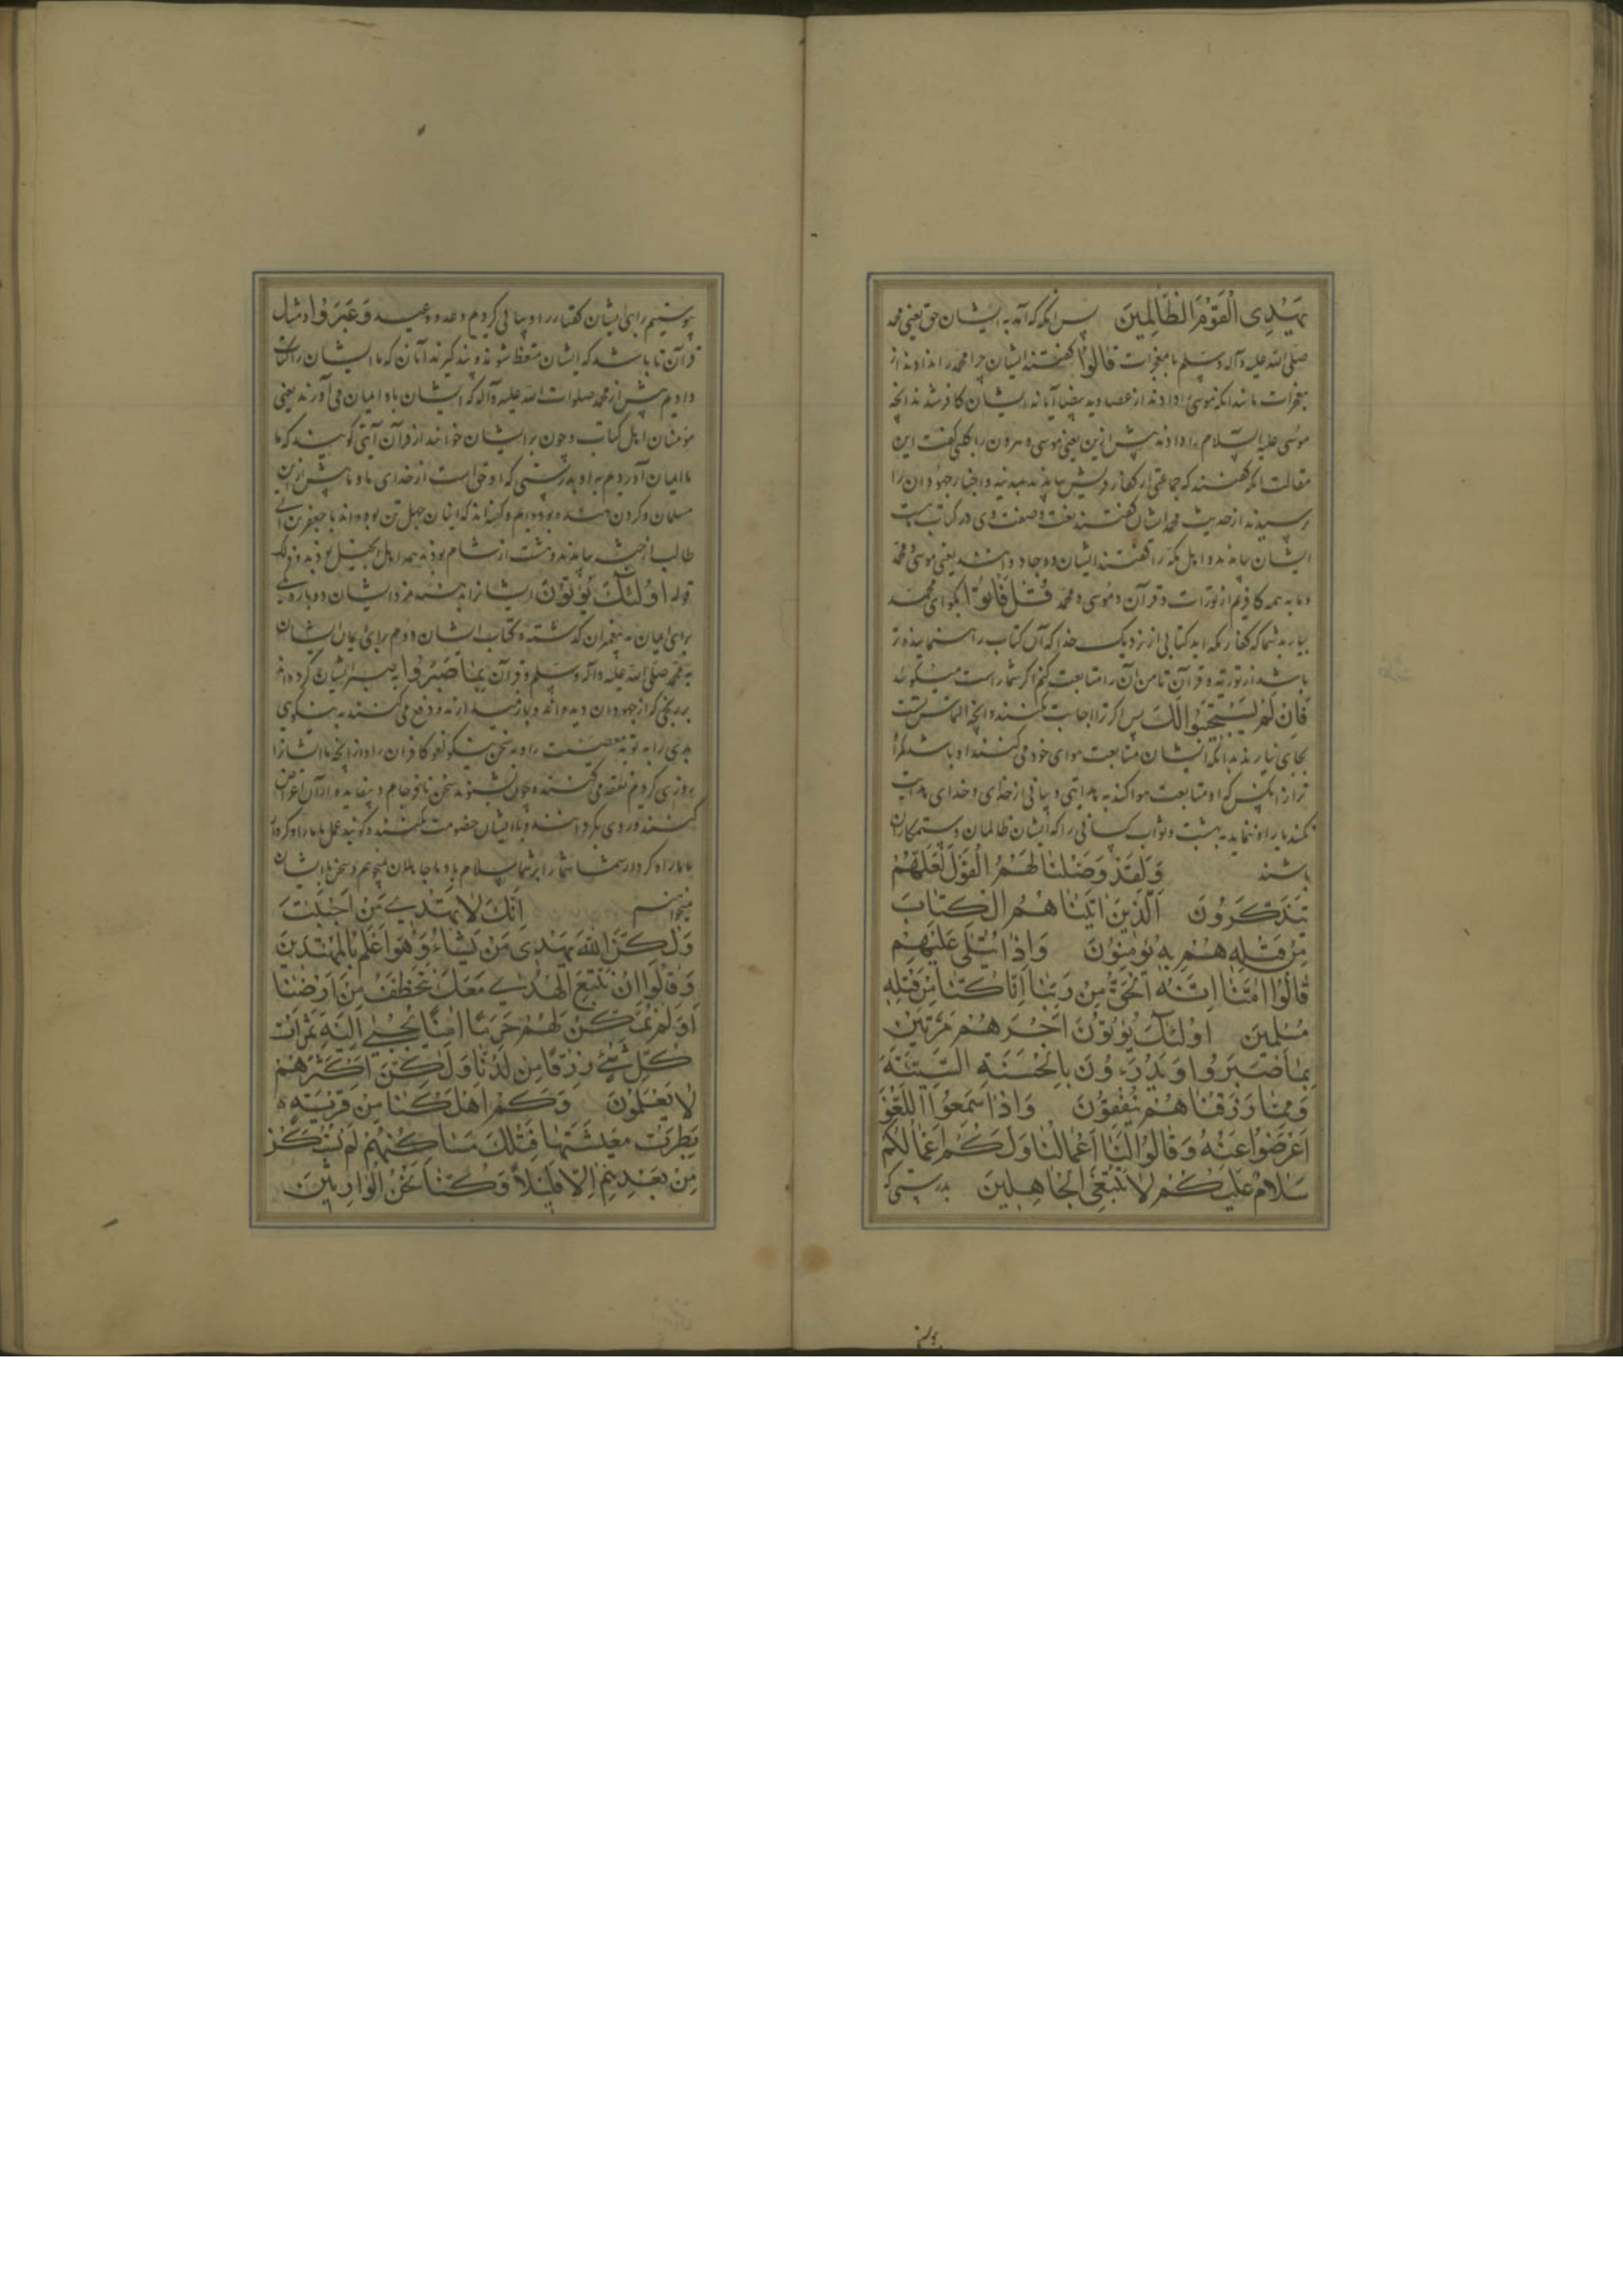 یَهْدِی الْقَوْمَ الظَّالِمِینَ پس آنکه که آمد به ایشان حق یعنی محمد
صلی الله علیه وآله وسلم با معجزات قَالُوا گفتند ایشان چرا محمد را ندادند از
معجزات مانند آنکه موسی را دادند از عصا و ید بیضا آیا نه ایشان کافر شدند آنچه
موسی علیه السلام را دادند پیش ازین یعنی موسی و هرون را کلبی گفت این
مقالت آنکه گفتند که جماعتی از کفار قریش بیامدند بمدینه و احبار جهودان را
پرسیدند از حدیث محمد ایشان گفتند نعت و صفت وی در کتاب هست
ایشان بیامدند و اهل مکه را گفتند ایشان دو جادو اند یعنی موسی و محمد
و ما به همه کافریم از تورات و قرآن و موسی و محمد قُلْ فَأْتُوا بگو ای محمد
بیارید شما که کفار مکه اید کتابی از نزدیک خدا که آن کتاب راه نماینده تر
باشد از توریة و قرآن تا من آن را متابعت کنم اگر شما راست میگوئید
فَاِنْ لَمْ یَسْتَجِیبُوا لَكَ پس اگر ترا اجابت نکنند و آنچه التماس تست
بجای نیارند بدانکه ایشان متابعت هوای خود می کنند و باشد گمراه
تر از آنکس که او متابعت هوا کند به هدایتی و بیانی از خدای و خدای هدایت
نکند یا راه ننماید به بهشت و ثواب کسانی را که ایشان ظالمان و ستمکاران
باشند وَلَقَدْ وَصَّلْنَا لَهُمُ الْقَوْلَ لَعَلَّهُمْ
یَتَذَكَّرُونَ اَلَّذِینَ اٰتَیْنَاهُمُ الْكِتَابَ
مِنْ قَبْلِهِ هُمْ بِهِ یُؤْمِنُونَ وَاِذَا یُتْلٰی عَلَیْهِمْ
قَالُوا اٰمَنَّا بِهِ اِنَّهُ الْحَقُّ مِنْ رَبِّنَا اِنَّا كُنَّا مِنْ قَبْلِهِ
مُسْلِمِینَ اُولٰئِكَ یُؤْتَوْنَ اَجْرَهُمْ مَرَّتَیْنِ
بِمَا صَبَرُوا وَیَدْرَءُونَ بِالْحَسَنَةِ السَّیِّئَةَ
وَمِمَّا رَزَقْنَاهُمْ یُنْفِقُونَ وَاِذَا سَمِعُوا اللَّغْوَ
اَعْرَضُوا عَنْهُ وَقَالُوا لَنَا اَعْمَالُنَا وَلَكُمْ اَعْمَالُكُمْ
سَلَامٌ عَلَیْكُمْ لَا نَبْتَغِی الْجَاهِلِینَ بدرستی که
پیوستیم برای ایشان گفتار را و بیانی کردیم وعد و وعید وَ عَبَرَوُا وامثال
قرآن تا باشد که ایشان متعظ شوند و پند گیرند آنان که ما ایشان را کتاب
دادیم پیش از محمد صلوات الله علیه وآله که ایشان باو ایمان می آورند یعنی
مؤمنان اهل کتاب و چون بر ایشان خوانند از قرآن آیتی گویند که ما
ما ایمان آوردیم به او بدرستی که او حق است از خدای ما و ما پیش ازین
مسلمان و گردن نهنده بوده ایم و گفته اند که اینان چهل تن بوده اند با جعفر بن ابی
طالب از حبشه بیامدند و هشت از شام بودند همه اهل انجیل بودند
قوله اُولٰئِكَ یُؤْتَوْنَ ایشانرا بدهند مزد ایشان دوباره یکی
برای ایمان به پیغمبران گذشته و کتاب ایشان دوم برای ایمان ایشان
به محمد صلی الله علیه وآله وسلم و قرآن بِمَا صَبَرُوا به صبر ایشان کرده اند
بر رنجی که از جهودان دیده اند و باز میدارند و دفع می کنند به نیکویی
بدی را به توبه معصیت را و به سخن نیکو لغو کافران را و از آنچه ما ایشانرا
روزی کردیم نفقه می کنند و چون بشنوند سخن نافرجام و بیفایده از آن اعراض
کنند و روی بگردانند و با ایشان خصومت نکنند و گویند عمل ما ما راو کردار
ما ما را و کردار شما شما را بر شما سلام باد ما جاهلان نجوئیم و سخن با ایشان
نخواهیم اِنَّكَ لَا تَهْدِی مَنْ اَحْبَبْتَ
وَلٰكِنَّ اللهَ یَهْدِی مَنْ یَشَاءُ وَهُوَ اَعْلَمُ بِالْمُهْتَدِینَ
وَقَالُوا اِنْ نَتَّبِعِ الْهُدٰی مَعَكَ نُتَخَطَّفْ مِنْ اَرْضِنَا
اَوَلَمْ نُمَكِّنْ لَهُمْ حَرَمًا اٰمِنًا یُجْبٰی اِلَیْهِ ثَمَرَاتُ
كُلِّ شَیْءٍ رِزْقًا مِنْ لَدُنَّا وَلٰكِنَّ اَكْثَرَهُمْ
لَا یَعْلَمُونَ وَكَمْ اَهْلَكْنَا مِنْ قَرْیَةٍ
بَطِرَتْ مَعِیشَتَهَا فَتِلْكَ مَسَاكِنُهُمْ لَمْ تُسْكَنْ
مِنْ بَعْدِهِمْ اِلَّا قَلِیلًا وَكُنَّا نَحْنُ الْوَارِثِینَ